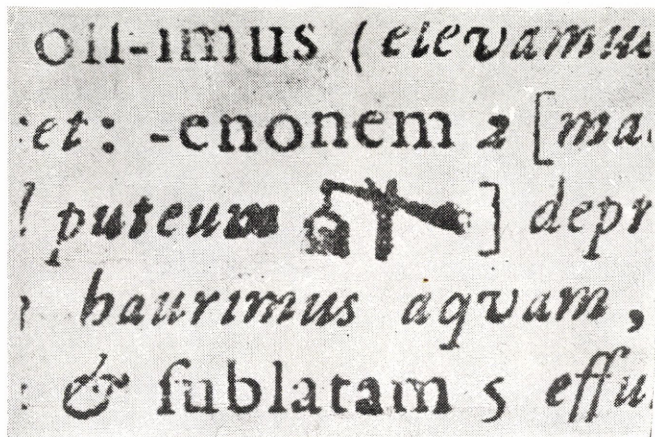 oll-imus (elevamu
et: -enonem 2 [ma
puteum ] depr
haurimus aqvam,
: & ſublatam 5 effu